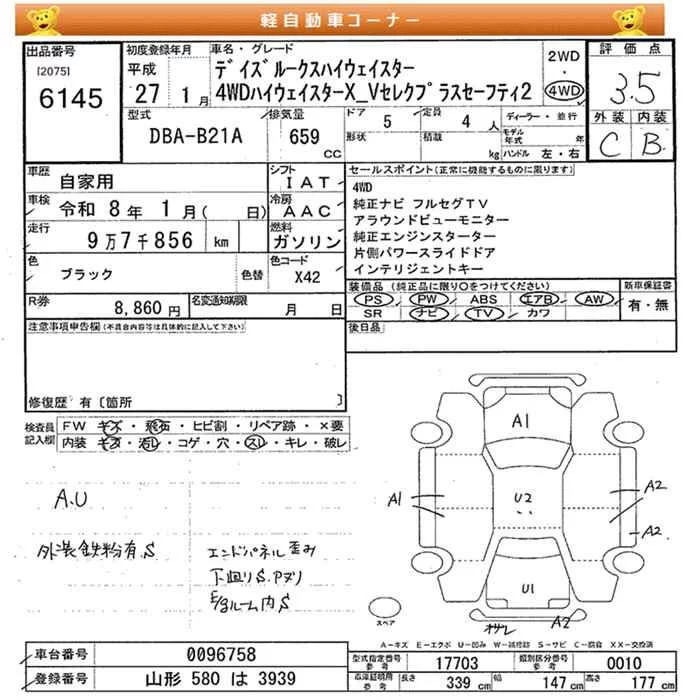 軽自動車コーナー
出品番号
[2075]
6145
初度登録年月
平成
27 1月
車名・グレード
デイズルークスハイウェイスター
4WDハイウェイスターX_Vセレクプラスセーフティ2
2WD
・
4WD
評価点
3.5
外装 内装
C B
型式
DBA-B21A
排気量
659
CC
ドア 5
定員 4 人
形状
積載 kg
ディーラー・並行
モデル年式 年
ハンドル 左・右
車歴
自家用
シフト
IAT
車検
令和 8年 1月( 日)
冷房
AAC
走行
9万7千856 km
燃料
ガソリン
色
ブラック
色替
色コード
X42
R券
8,860円
名変通知期限
月 日
セールスポイント(正常に機能するものに限ります)
4WD
純正ナビ フルセグTV
アラウンドビューモニター
純正エンジンスターター
片側パワースライドドア
インテリジェントキー
装備品 (純正品に限り○をつけてください)
PS PW ABS エアB AW
SR ナビ TV カワ
新車保証書
有・無
後日品
注意事項申告欄(不具合内容等は具体的に記入して下さい)
修復歴 有〔箇所 〕
検査員記入欄
FW キズ・飛石・ヒビ割・リペア跡・×要
内装 キズ・汚レ・コゲ・穴・スレ・キレ・破レ
A.U
外装鉄粉有.S
エンドパネル歪み
下廻りS.アブリ
E/gルーム内S
A1
A1
U2
A2
A2
U1
A2
スペア
A-キズ E-エクボ U-凹み W-補修跡 S-サビ C-腐食 XX-交換済
車台番号
0096758
登録番号
山形 580 は 3939
型式指定番号 参考
17703
類別区分番号 参考
0010
車庫証明用 参考
長さ 339 cm
幅 147 cm
高さ 177 cm